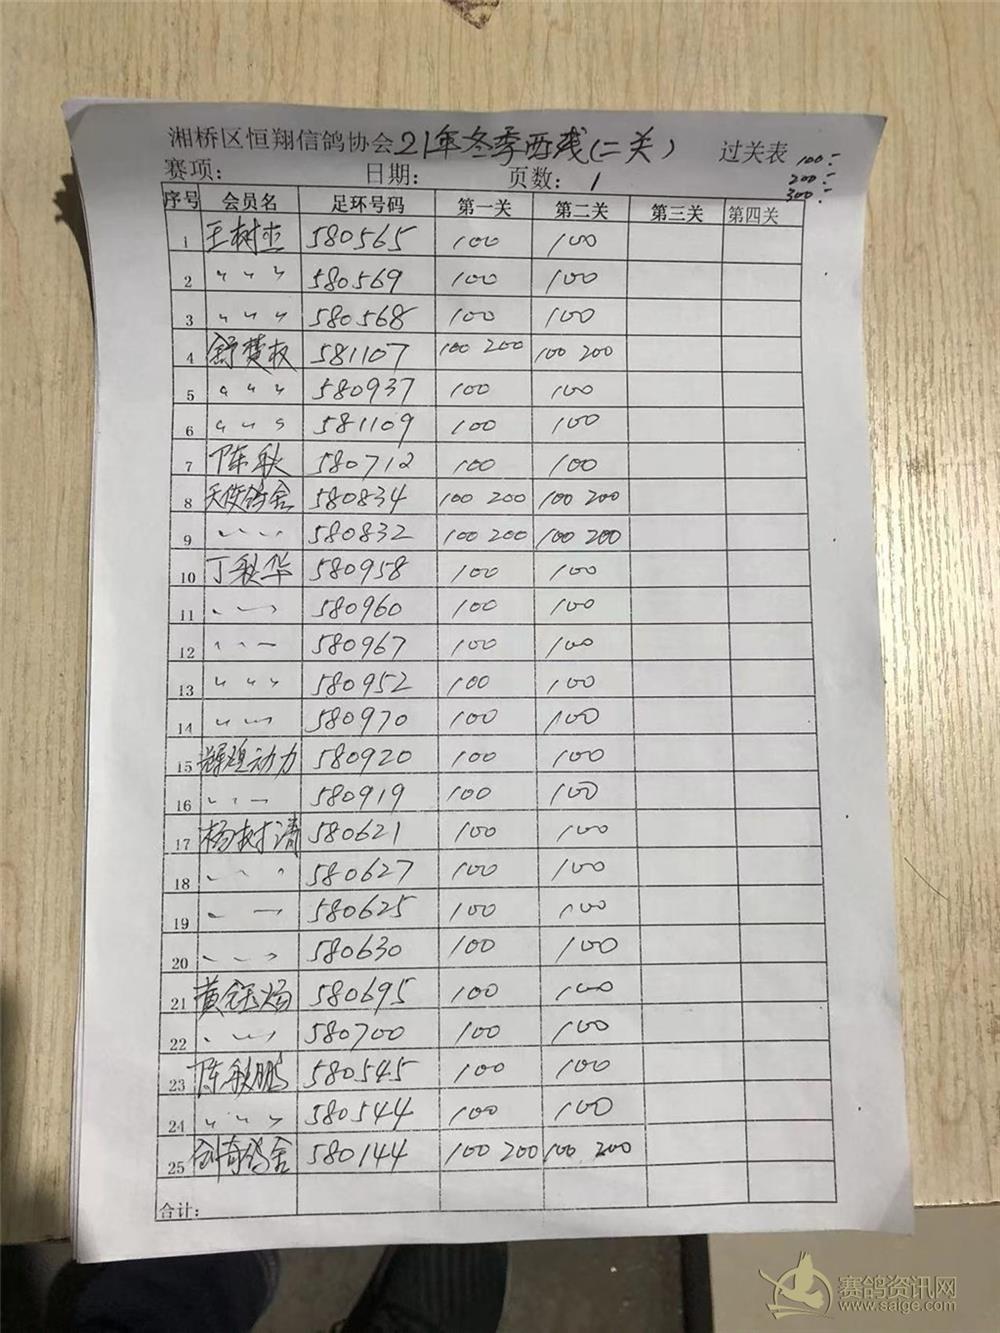 湘桥区恒翔信鸽协会21年冬季两残(二关) 过关表
100:-
200:-
300:-
赛项: 日期: 页数: 1
序号 会员名 足环号码 第一关 第二关 第三关 第四关
1 王树杰 580565 100 100
2 〃 〃 〃 580569 100 100
3 〃 〃 〃 580568 100 100
4 舒楚权 581107 100 200 100 200
5 〃 〃 〃 580937 100 100
6 〃 〃 〃 581109 100 100
7 陈秋 580712 100 100
8 天使鸽舍 580834 100 200 100 200
9 〃 〃 〃 580832 100 200 100 200
10 丁秋华 580958 100 100
11 〃 〃 580960 100 100
12 〃 〃 〃 580967 100 100
13 〃 〃 〃 580952 100 100
14 〃 〃 〃 580970 100 100
15 动力 580920 100 100
16 〃 〃 〃 580919 100 100
17 杨树涛 580621 100 100
18 〃 〃 〃 580627 100 100
19 〃 〃 580625 100 100
20 〃 〃 〃 580630 100 100
21 黄钰炀 580695 100 100
22 〃 〃 〃 580700 100 100
23 陈秋鹏 580545 100 100
24 〃 〃 〃 580544 100 100
25 创奇鸽舍 580144 100 200 100 200
合计:
赛鸽资讯网
www.saige.com